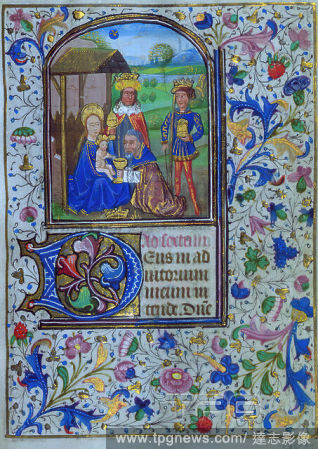 Ad sextam
Deus in ad
iutorium
meum in
tende. Dñe
TPG
www.tpgnews.com/ 達志影像